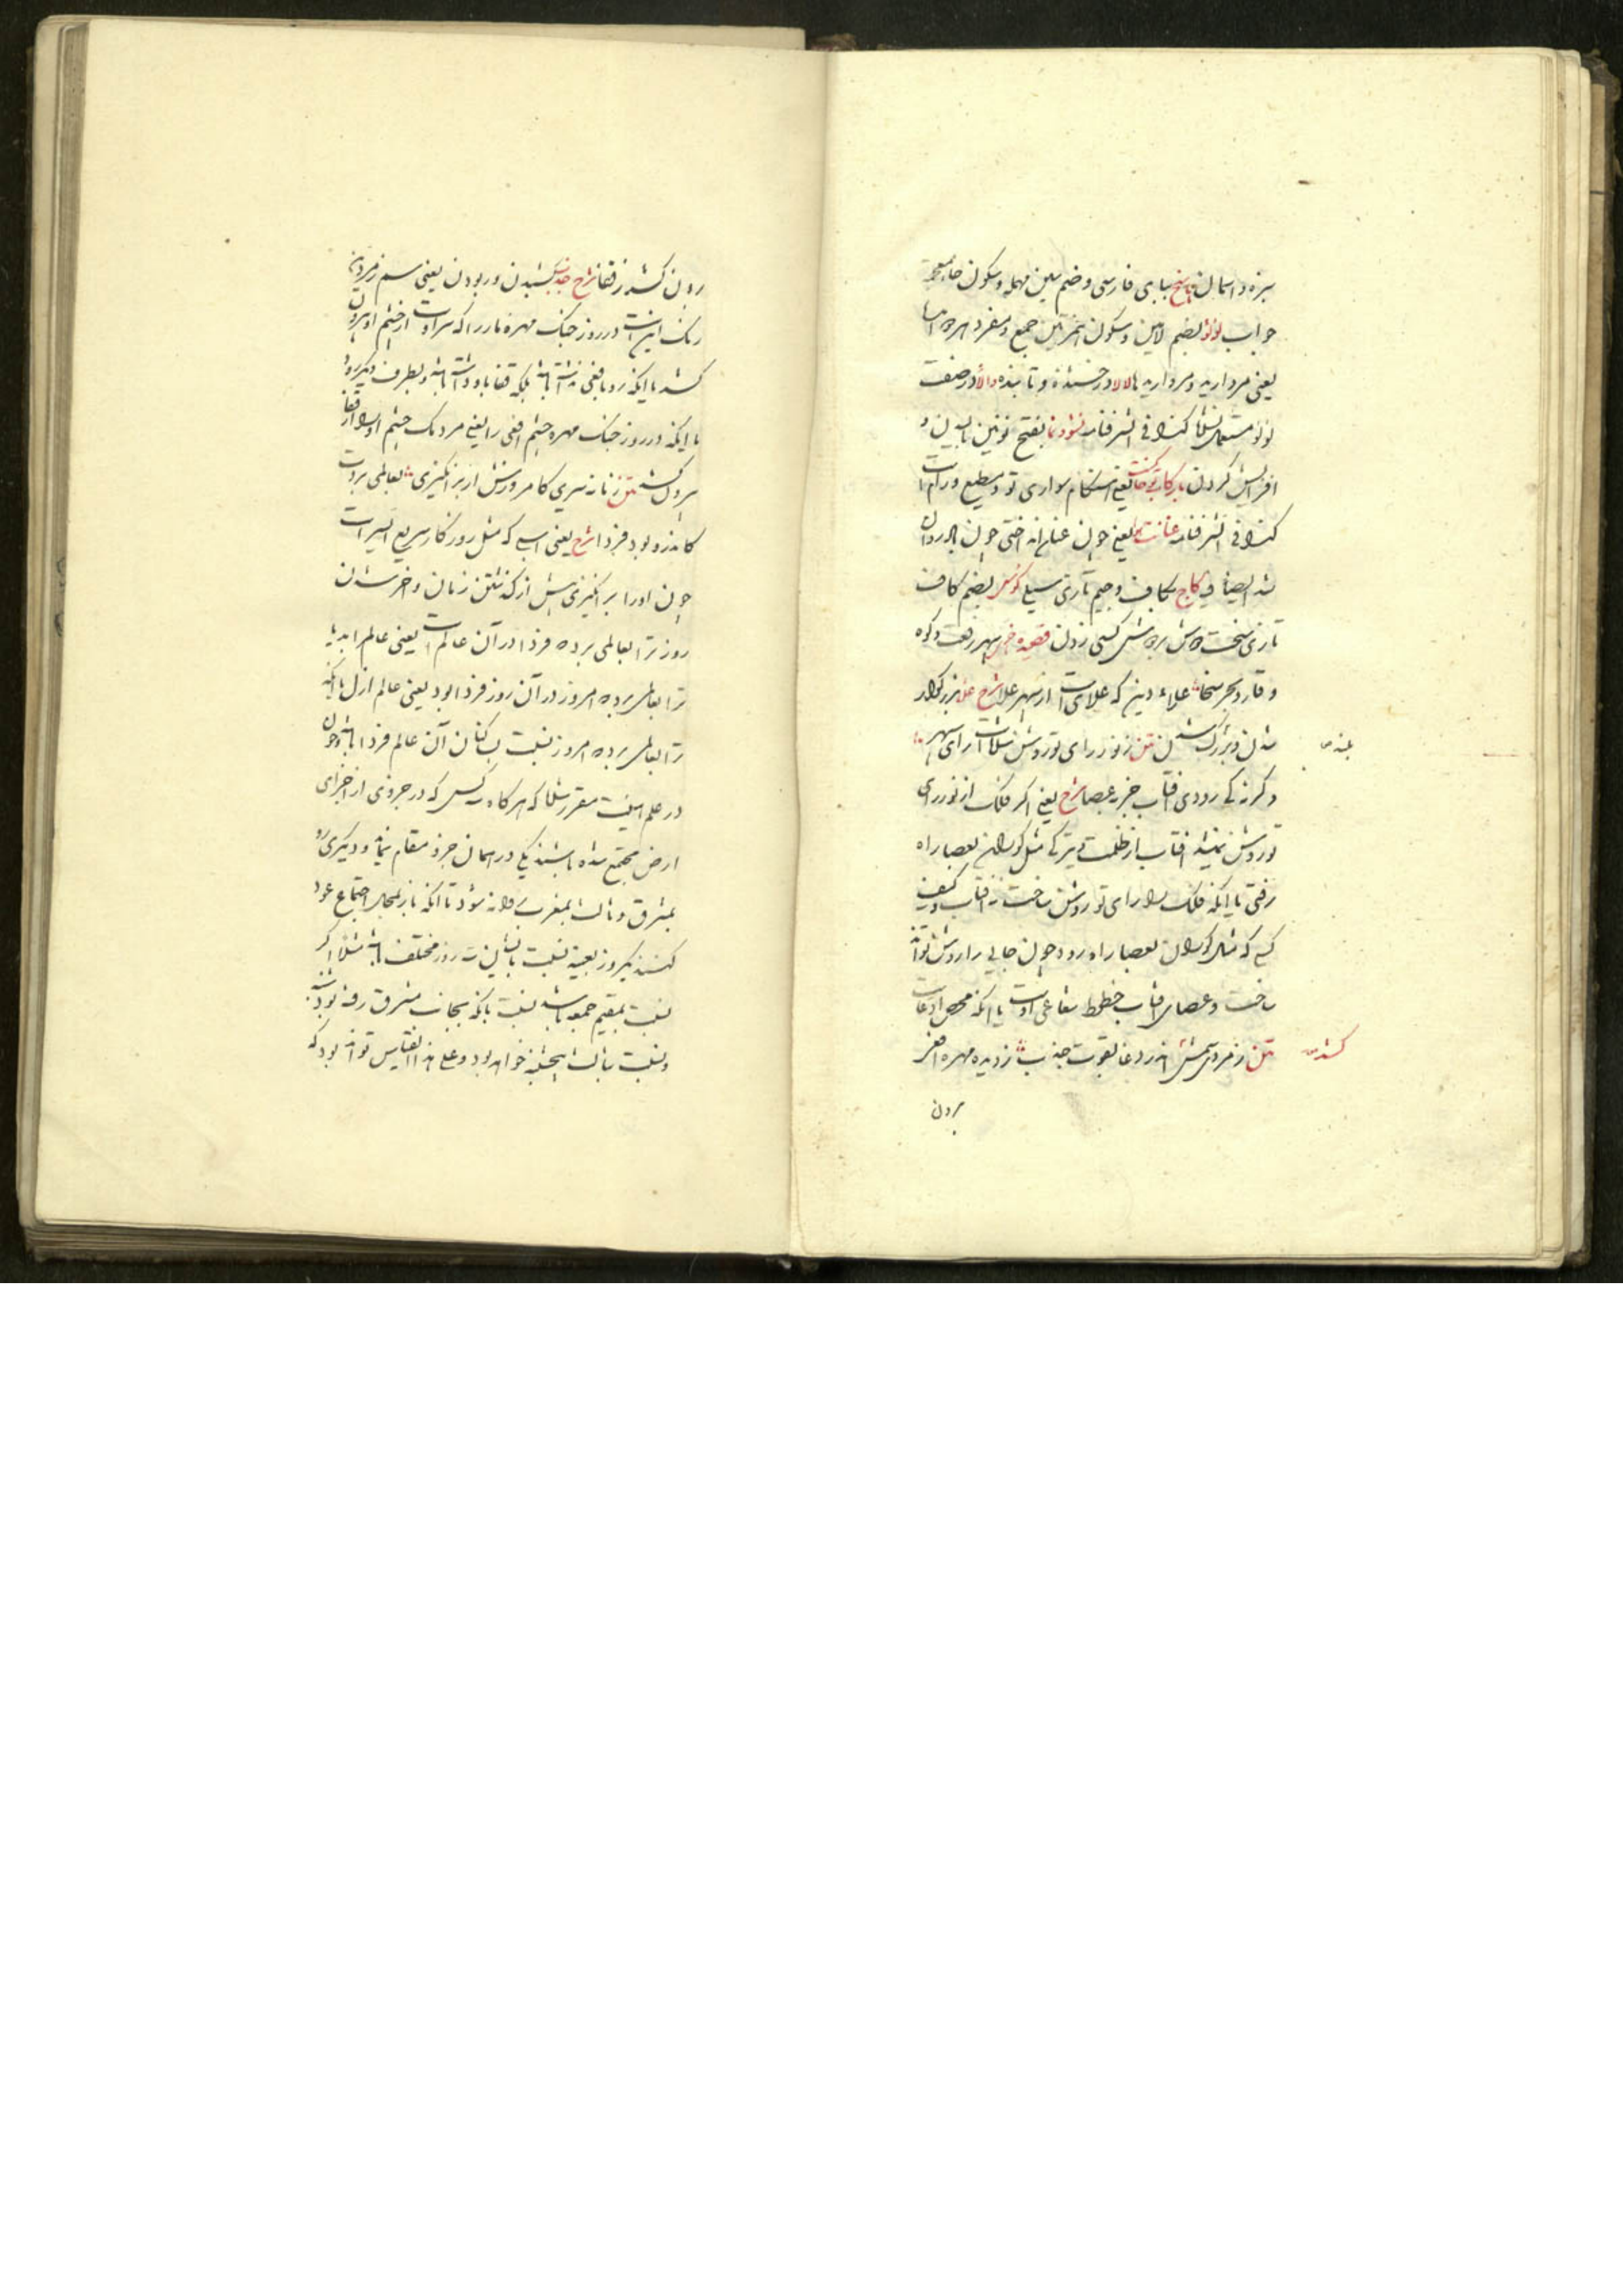 سبزه و اسمان پاسخ ببای فارسی و ضم سین مهمله و سکون خاء معجمه
جواب لؤلؤ بضم لامین و سکون همزتین جمع و مفرد هر دو امده
یعنی مروارید و مروارید لالا درخشنده و تابنده والا در صفت
لؤلؤ مستعمل کذا فی الشرفنامه نشو و نما بفتح نونین بالیدن و
افزایش کردن یعنی هنکام سواری تو و مطیع و رام است
کذا فی الشرفنامه یعنی چون عنان انداختی چون
کاج بکاف و جیم تازی سیلی کوس بضم کاف
تازی سخت دوش بر دوش کسی زدن قصیده سپهر رفعت و کوه
وقار و بحر سخا علاء دین که علای است از سپهر علا شرح علا بزرکوار
شدن و بزرک شدن متن ز نور رای تو روشن شده است رای سپهر
بلند
وکرنه کی رودی افتاب جز بعصا شرح یعنی اکر فلک از نور رای
تو روشن نمیشد افتاب از ظلمت و تیرکی مثل کوران بعصا راه
رفتی یا انکه فلک را رای تو روشن ساخت نه افتاب و کیف
کسی که مثل کوران بعصا راه رود چون جایی را روشن تواند
ساخت و عصای افتاب خطوط شعاعی اوست یا انکه محض ادعاست
متن زمرد اندر وغا بقوت جذب ز دیده مهره افعی
کشد
برون
برون کشد ز قفا شرح جذب کشیدن و ربودن یعنی سم زمردین
رنک اسب در روز جنک مهره مار را که سر اوست از چشم او بیرون
کشد با انکه رو بافعی نداشته باشد بلکه قفا باو داشته باشد و بطرف دیکر رود
یا انکه در روز جنک مهره چشم افعی را یعنی مردمک چشم او را از قفا
بیرون کشد متن زمانه سیری کامروزش ار برانکیزی بعالمی بردت
کاندرو بود فردا شرح یعنی اسبی که مثل روزکار سریع السیر است
چون او را برانکیزی پیش از کذشتن زمان و اخر شدن
روز ترا بعالمی برد که فردا در آن عالم است یعنی عالم ابد یا
ترا بعالمی برد که امروز در آن روز فردا بود یعنی عالم ازل یا انکه
ترا بعالمی برد که امروز نسبت بساکنان آن عالم فردا باشد و چون
در علم هیئت مقرر شده که هرکاه سه کس که در جزوی از اجزای
ارض مجتمع شده باشند یکی در همان جزو مقام نماید و دیکری رو
بمشرق و ثالث بمغرب روانه شود تا انکه باز بمحل اجتماع عود
کنند یکروز بعینه نسبت باین سه روز مختلف باشد مثلا اکر
نسبت بمقیم جمعه باشد نسبت بانکه بجانب مشرق رفته بود شنبه
و نسبت بثالث پنجشنبه خواهد بود و علی هذا القیاس تواند بود که